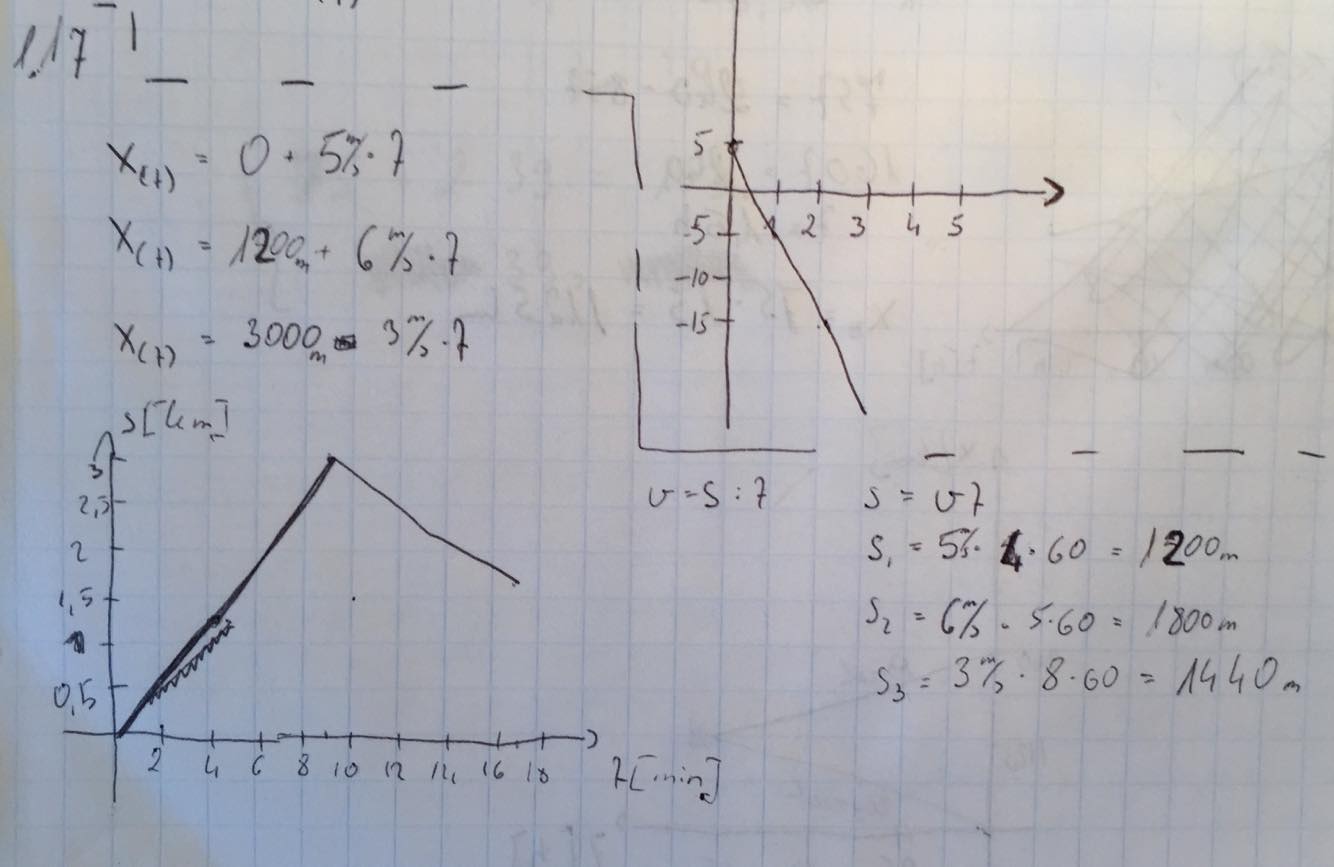 1.17
X(t) = 0 + 5 m/s · t
X(t) = 1200m + 6 m/s · t
X(t) = 3000m - 3 m/s · t
5
-5
-10
-15
1 2 3 4 5
s[km]
3
2,5
2
1,5
1
0,5
2 4 6 8 10 12 14 16 18 t[min]
v = s : t
s = vt
s₁ = 5 m/s · 4 · 60 = 1200m
s₂ = 6 m/s · 5 · 60 = 1800m
s₃ = 3 m/s · 8 · 60 = 1440m